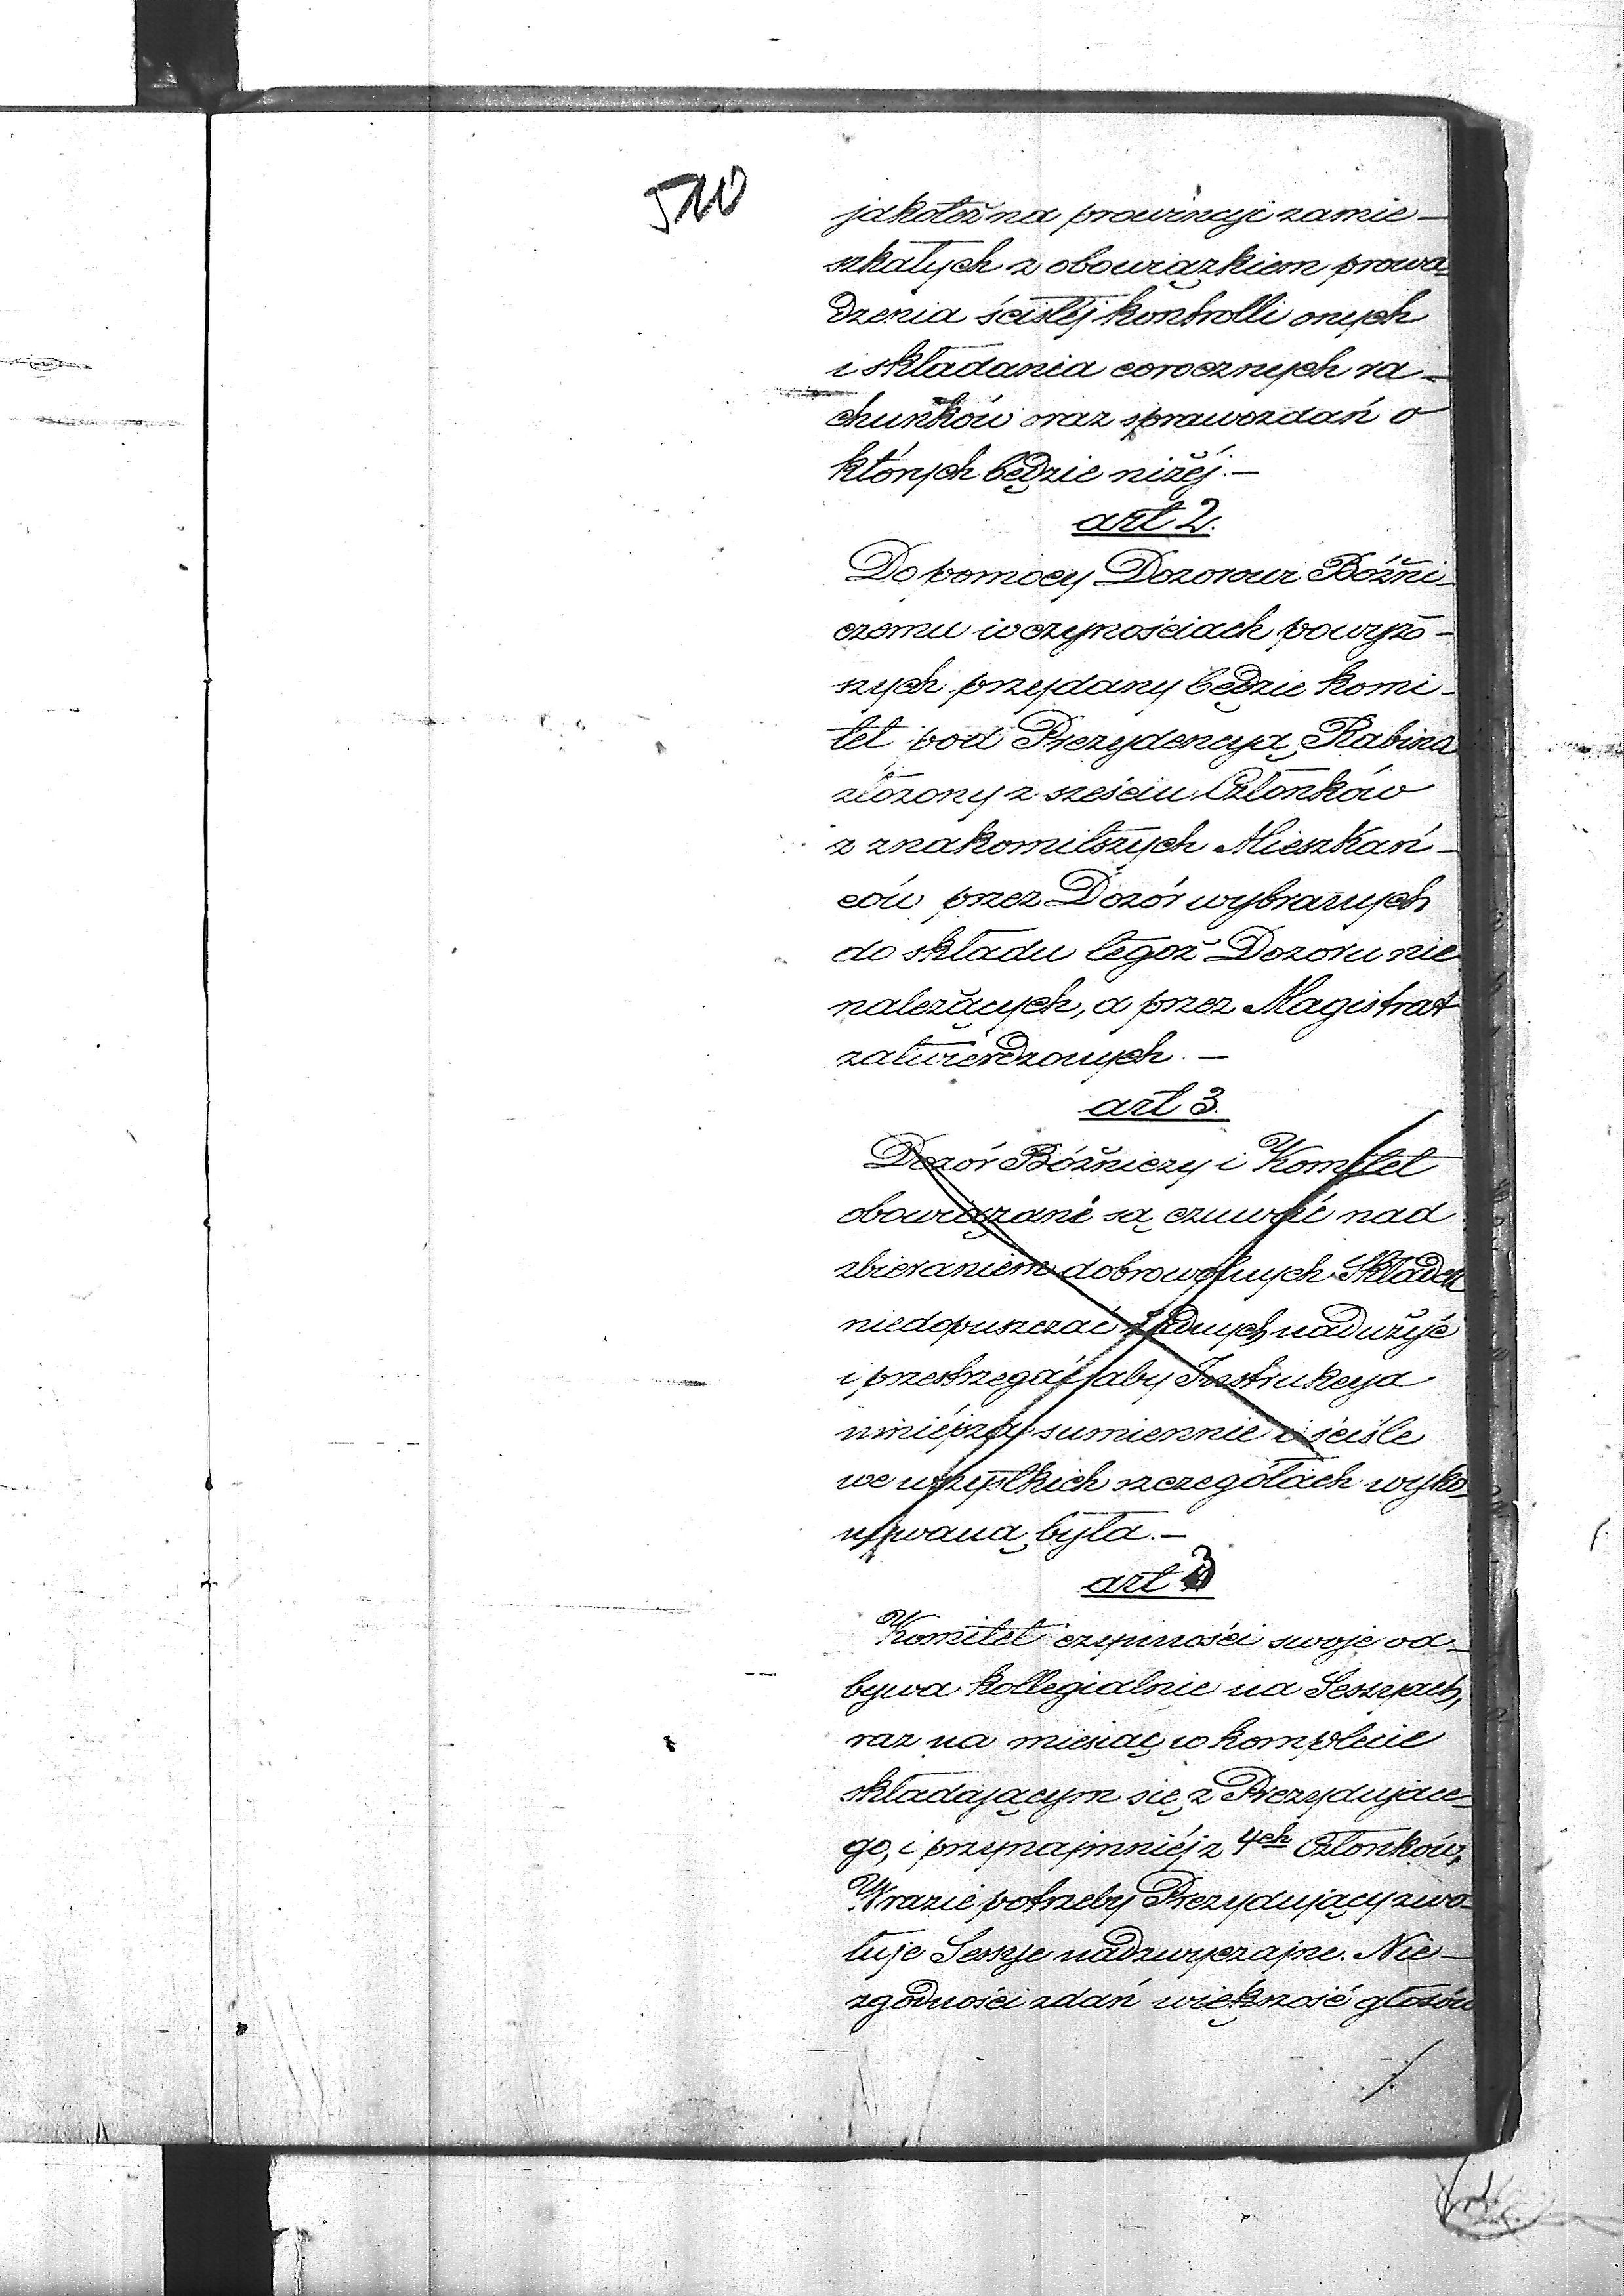 510
jakoteż na prowincyi zamie-
szkałych z obowiązkiem prowa-
dzenia ścisłéj kontrolli onych
i składania corocznych ra-
chunków oraz sprawozdań o
których będzie niżéj.-
art 2.
Do pomocy Dozorowi Bóżni-
czemu w czynościach powyż-
szych przydany będzie komi-
tet pod Prezydencyą Rabina
złożony z sześciu Członków
z znakomitszych Mieszkań-
ców przez Dozór wybranych
do składu tegoż Dozoru nie
należących, a przez Magistrat
zatwierdzonych.-
art 3.
Dozór Bóżniczy i Komitet
obowiązani są czuwać nad
zbieraniem dobrowolnych Składek
niedopuszczać żadnych nadużyć
i przestrzegać aby Instrukcya
niniéjsza sumiennie i ściśle
we wszystkich szczegółach wyko-
nywaną była.-
art 3
Komitet czynności swoje od-
bywa kollegialnie na Sessyach,
raz na miesiąc w komplecie
składającym się z Prezydujące-
go, i przynajmniéj z 4ch Członków,
W razie potrzeby Prezydujący zwo-
łuje Sessye nadzwyczajne. Nie-
zgodności zdań większość głosów